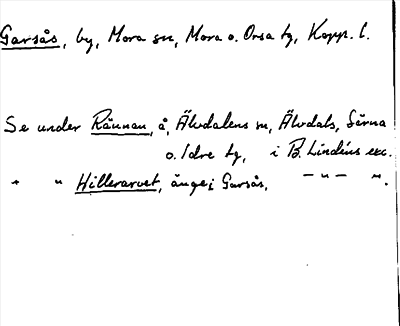 Garsås, by, Mora sn, Mora o. Orsa tg, Kopp. l.
Se under Rännan, å, Älvdalens sn, Älvdals, Särna
o. Idre tg, i B. Lindéns exc.
" " Hillerarvet, änge i Garsås, — " — ".